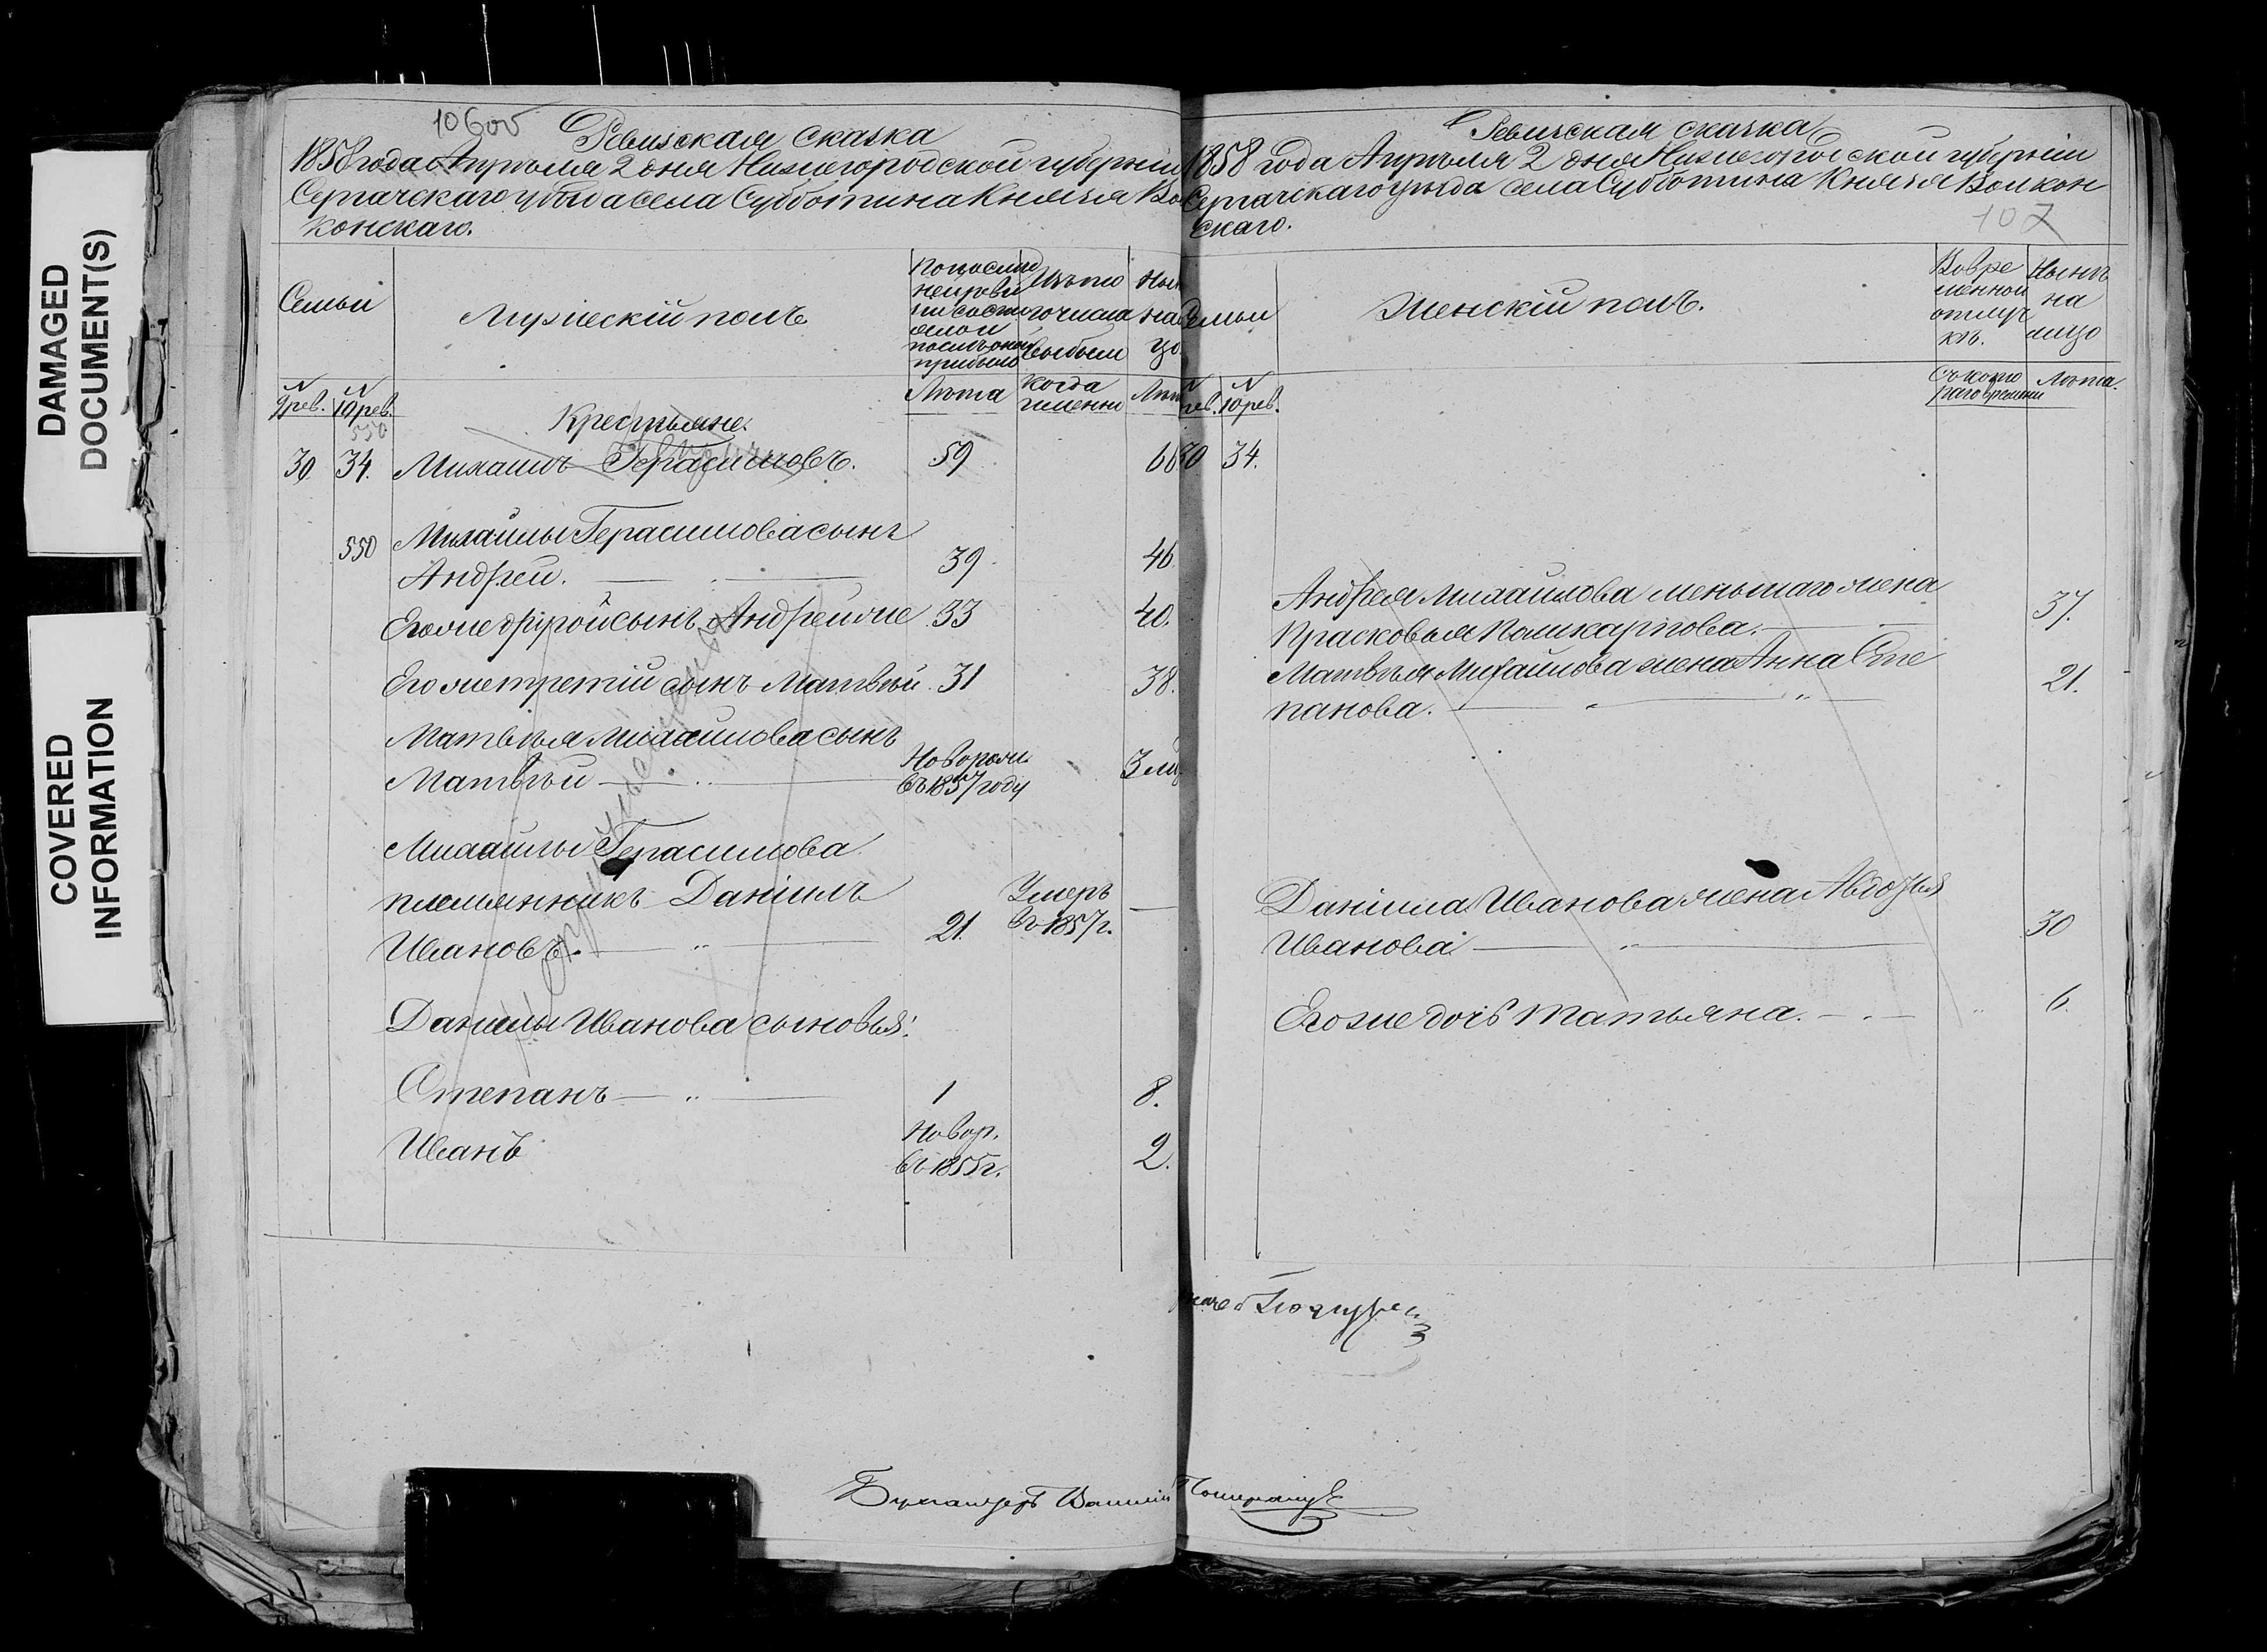 DAMAGED
DOCUMENT(S)
COVERED
INFORMATION
106об
Ревизская сказка
1858 года Апрѣля 2 дня Нижегородской губерніи
Сергачскаго уѣзда села Субботина Князя Вол
конскаго.
Семьи
Мужескій полъ
По послѣд
ней реви
зіи состо
яло и
послѣ оной
прибыло
Изъ то
го числа
выбыли
Лѣта
когда
именно
№
9 рев.
№
10 рев.
550
Крестьяне.
30. 34. Михаилъ Герасимовъ. 59 66
550 Михайлы Герасимова сынъ
Андрей. 39 46.
Его же другой сынъ Андрей же 33 40.
Его же третій сынъ Матвѣй. 31 38.
Матвѣя Михайлова сынъ
Матвѣй Новорож.
въ 1857 году
Михайлы Герасимова
племянникъ Даніилъ Умеръ
Ивановъ. 21. въ 1857 г.
Данилы Иванова сыновья:
Степанъ 1 8.
Иванъ Новор.
въ 1855 г. 2.
Ревизская сказка
1858 года Апрѣля 2 дня Нижегородской губерніи
Сергачскаго уѣзда села Субботина Князя Волкон
скаго.
107
Семьи
Женскій полъ.
Во вре
менной
отлуч
кѣ.
Нынѣ
на
лицо
рев.
№
10 рев.
Съ кото
раго времени
Лѣта.
30 34.
Андрея Михайлова меньшаго жена
Прасковья Поликарпова. 37.
Матвѣя Михайлова жена Анна Сте
панова. 21.
Даніила Иванова жена Авдотья
Иванова 30
Его же дочь Татьяна. 6.
Бухгалтеръ Василій